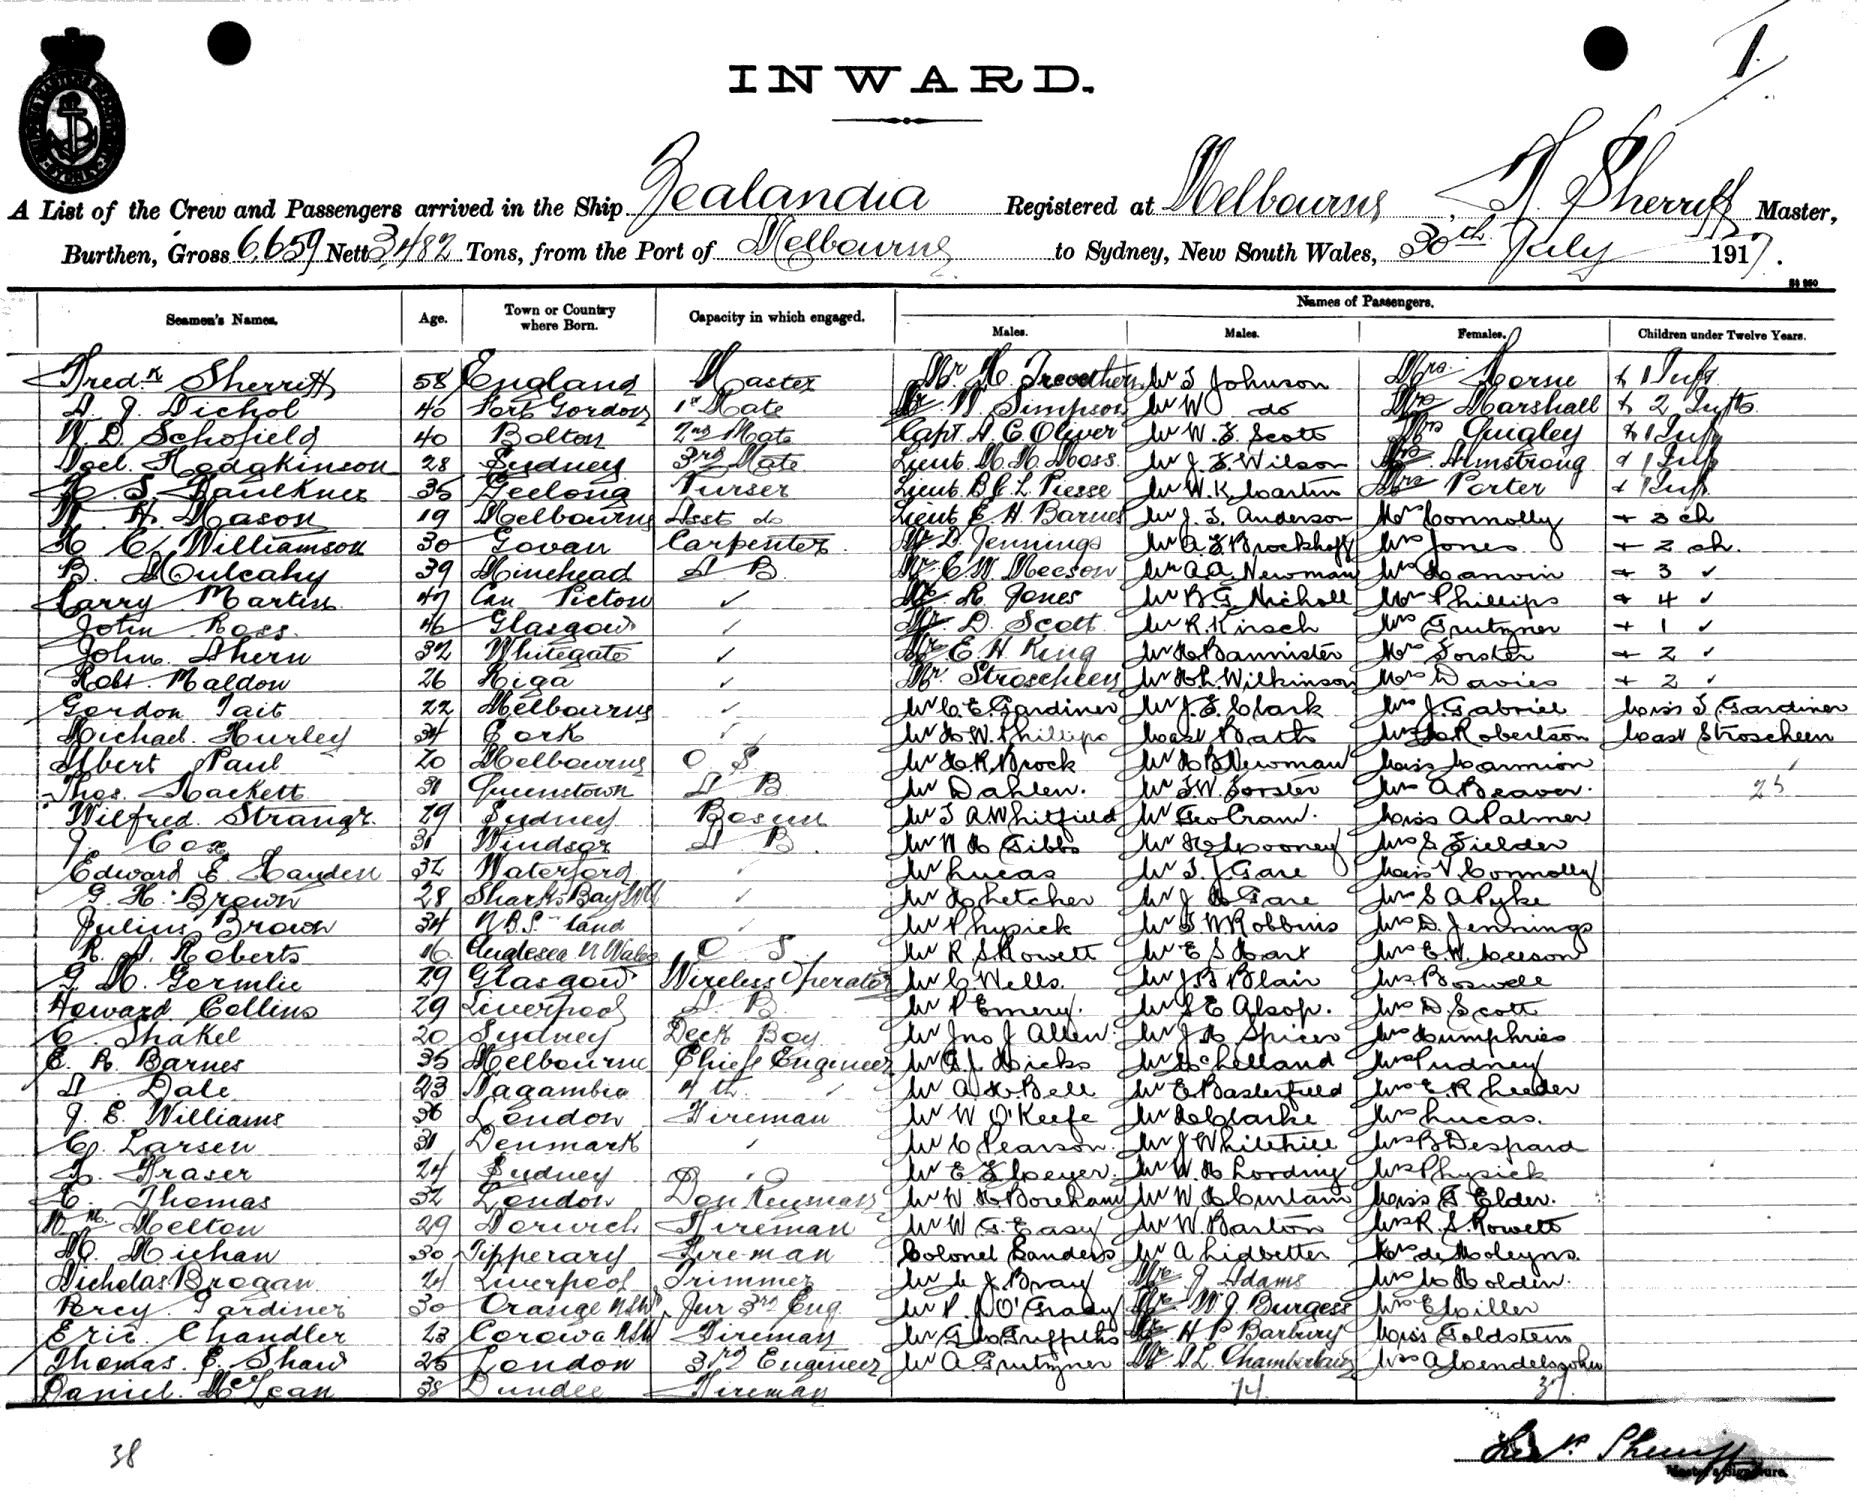 1.
INWARD.
A List of the Crew and Passengers arrived in the Ship Zealandia Registered at Melbourne, F Sherriff Master,
Burthen, Gross 6,659 Nett 3,482 Tons, from the Port of Melbourne to Sydney, New South Wales, 30th July 1917.
Seamen's Names. Age. Town or Country where Born. Capacity in which engaged. Names of Passengers.
Males. Males. Females. Children under Twelve Years.
Fredk Sherriff 58 England Master Mr H. Mr T Johnson Mrs Horne & 1 Inft
A. J. Nichol 40 Port Gordon 1st Mate Mr W Simpson Mr W do Mrs Marshall & 2 Infts
W. D. Schofield 40 Bolton 2nd Mate Capt. A. E. Oliver Mr W. F. Scott Mrs Quigley & 1 Inft
Noel. Hodgkinson 28 Sydney 3rd Mate Lieut. Moss Mr J. F. Wilson Mrs Armstrong & 1 Inft
S. Faulkner 35 Geelong Purser Lieut. B. E. L. Piesse Mr W. K. Martin Mrs Porter + 1 Inft
W. H. Mason 19 Melbourne Asst do Lieut E. H. Barnes Mr J. S. Anderson Mrs Connolly + 3 ch
H C. Williamson 30 Govan Carpenter Mr D. Jennings Mr A. F Brockhoff Mrs Jones + 2 ch.
B. Mulcahy 39 Minehead A B Mr C W Meeson Mr A. A. Newman Mrs + 3 ✓
Harry Martin 47 Can Picton ✓ Mr R. Jones Mr B. G. Nicholl Mrs Phillips + 4 ✓
John Ross. 46 Glasgow ✓ Mr. D. Scott Mr R. Kirsch Mrs Grutzner + 1 ✓
John Ahern 32 Whitegate ✓ Mr E H King Mr H Bannister Mrs Forster + 2 ✓
Robt. Maldon 26 Riga ✓ Mr. Stroscheen Mr Wilkinson Mrs Davies + 2 ✓
Gordon Tait 22 Melbourne ✓ Mr C. E. Gardiner Mr J. F. Clark Mrs J. Gabriel Miss T. Gardiner
Michael Hurley 34 Cork ✓ Mr H. W. Phillips Mast Bath Mrs Robertson Mast Stroscheen
Albert Paul 20 Melbourne O S Mr H. R. Brock Mr H B Newman Miss Mannion
Thos. Hackett 31 Queenstown A B Mr Dahlen. Mr F. W. Forster Mrs A Beaver. 25
Wilfred. Strangr. 29 Sydney Bosun Mr T A Whitfield Mr Geo Cram. Miss A Palmer
J. Cox 31 Windsor A B. Mr N H Gibbs Mr H Mooney Mrs S Fielder
Edward E. Hayden 32 Waterford ✓ Mr Lucas Mr T. J Gare Miss V. Connolly
G. H. Brown 28 Sharks Bay WA ✓ Mr H Letcher Mr J H Gare Mrs S A Pyke
Julius Brown 34 ✓ Mr Physick Mr F W Robbins Mrs D. Jennings
R. A. Roberts 16. Anglesea N Wales O. S. Mr R S Rowett Mr E S Hart Mrs E W. Meeson
G. M. Germlie 29 Glasgow Wireless Operator Mr C Wells. Mr J B Blair Mrs Boswell
Howard Collins 29 Liverpool A. B. Mr P Emery. Mr S E Alsop. Mrs D. Scott
C. Shakel 20 Sydney Deck Boy Mr Jno J Allen. Mr J H Spicer Mrs Humphries
E. R. Barnes 35 Melbourne Chief Engineer Mr Hicks Mr McLelland Mrs Pudney
A Dale 23 Nagambie 4th ✓ Mr A H Bell Mr E Basterfield Mrs E R Rheeder
J. E. Williams 36 London Fireman Mr W O'Keefe Mr H Clarke Mrs Lucas.
C. Larsen 31 Denmark ✓ Mr C Pearson. Mr J Whitehill Mrs B Despard
L. Fraser 24 Sydney ✓ Mr E. F. Meyer. Mr W. H Lording Mrs Physick
C. Thomas 32 London Donkeyman Mr W H Boreham Mr W H Curtain Miss G Elder.
Wm Melton 29 Norwich Fireman Mr W. G. Easy Mr W. Barton Mrs R. S. Rowett
M. Michan 30 Tipperary Fireman Colonel Sanders Mr A Lidbetter Mrs de Moleyns
Nicholas Brogan 24 Liverpool Trimmer Mr C J Bray Mr J Adams Mrs C Holden.
Percy Gardiner 30 Orange NSW Jnr 3rd Eng. Mr P. J. O'Grady Mr W J. Burgess Mrs E Miller
Eric. Chandler 23 Corowa NSW Fireman Mr G Griffiths Mr H P Barbury Miss Goldstein
Thomas. E. Shaw 25 London 3rd Engineer Mr A. Grutzner Mr A. L. Chamberlain Mrs A Mendelssohn
Daniel. McLean 38 Dundee Fireman 74 37.
38
Fredk Sherriff
Master's Signature.